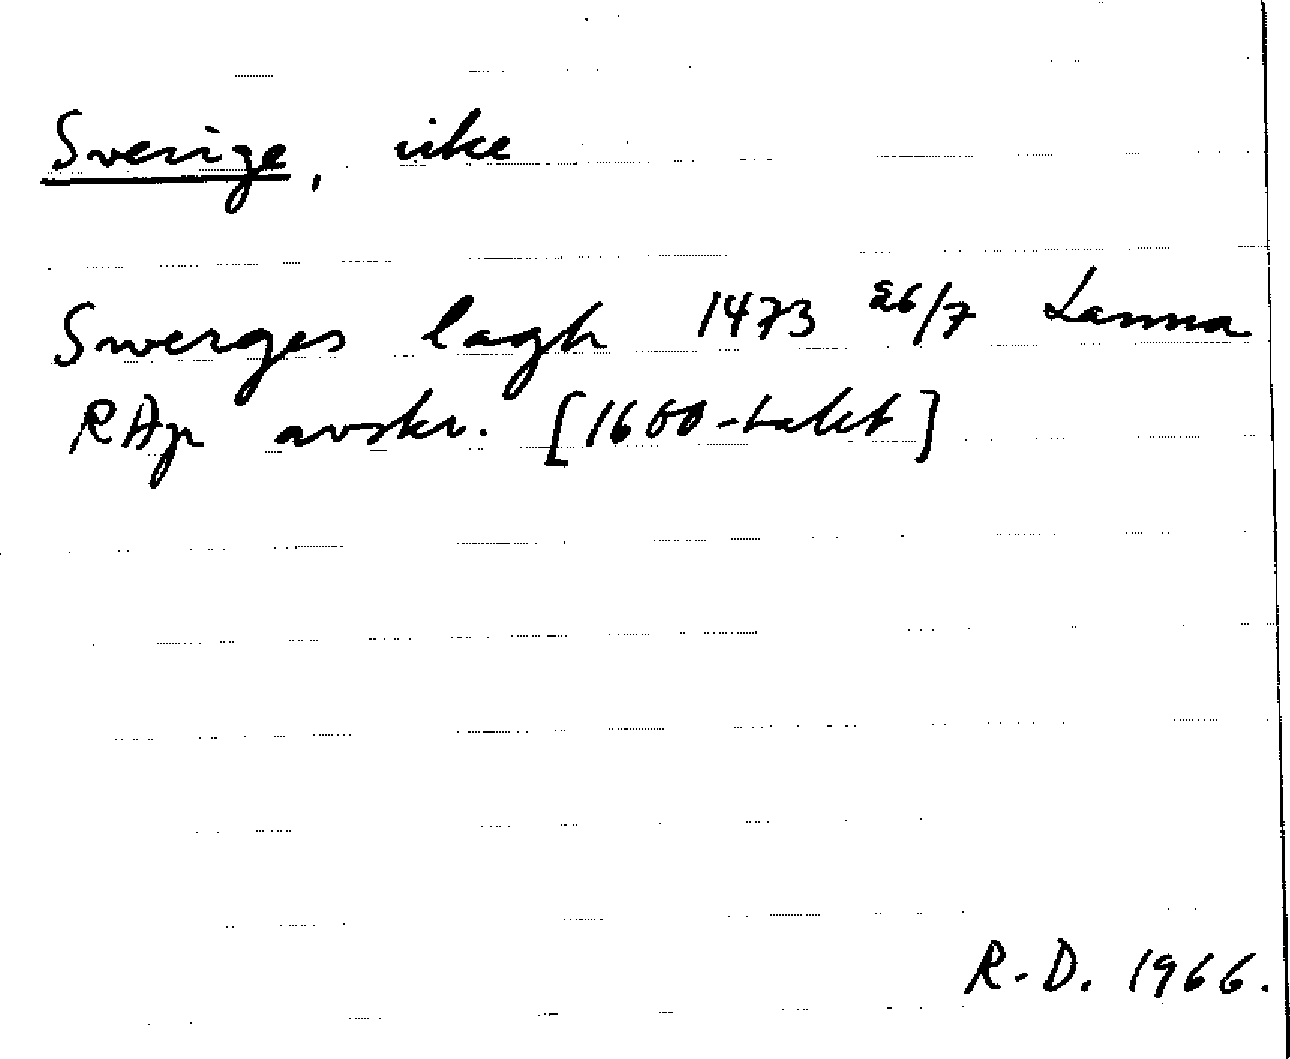 Sverige, rike
Swerges lagh 1473 26/7 Lanna
RAp avskr. [1600-talet]
R-D. 1966.